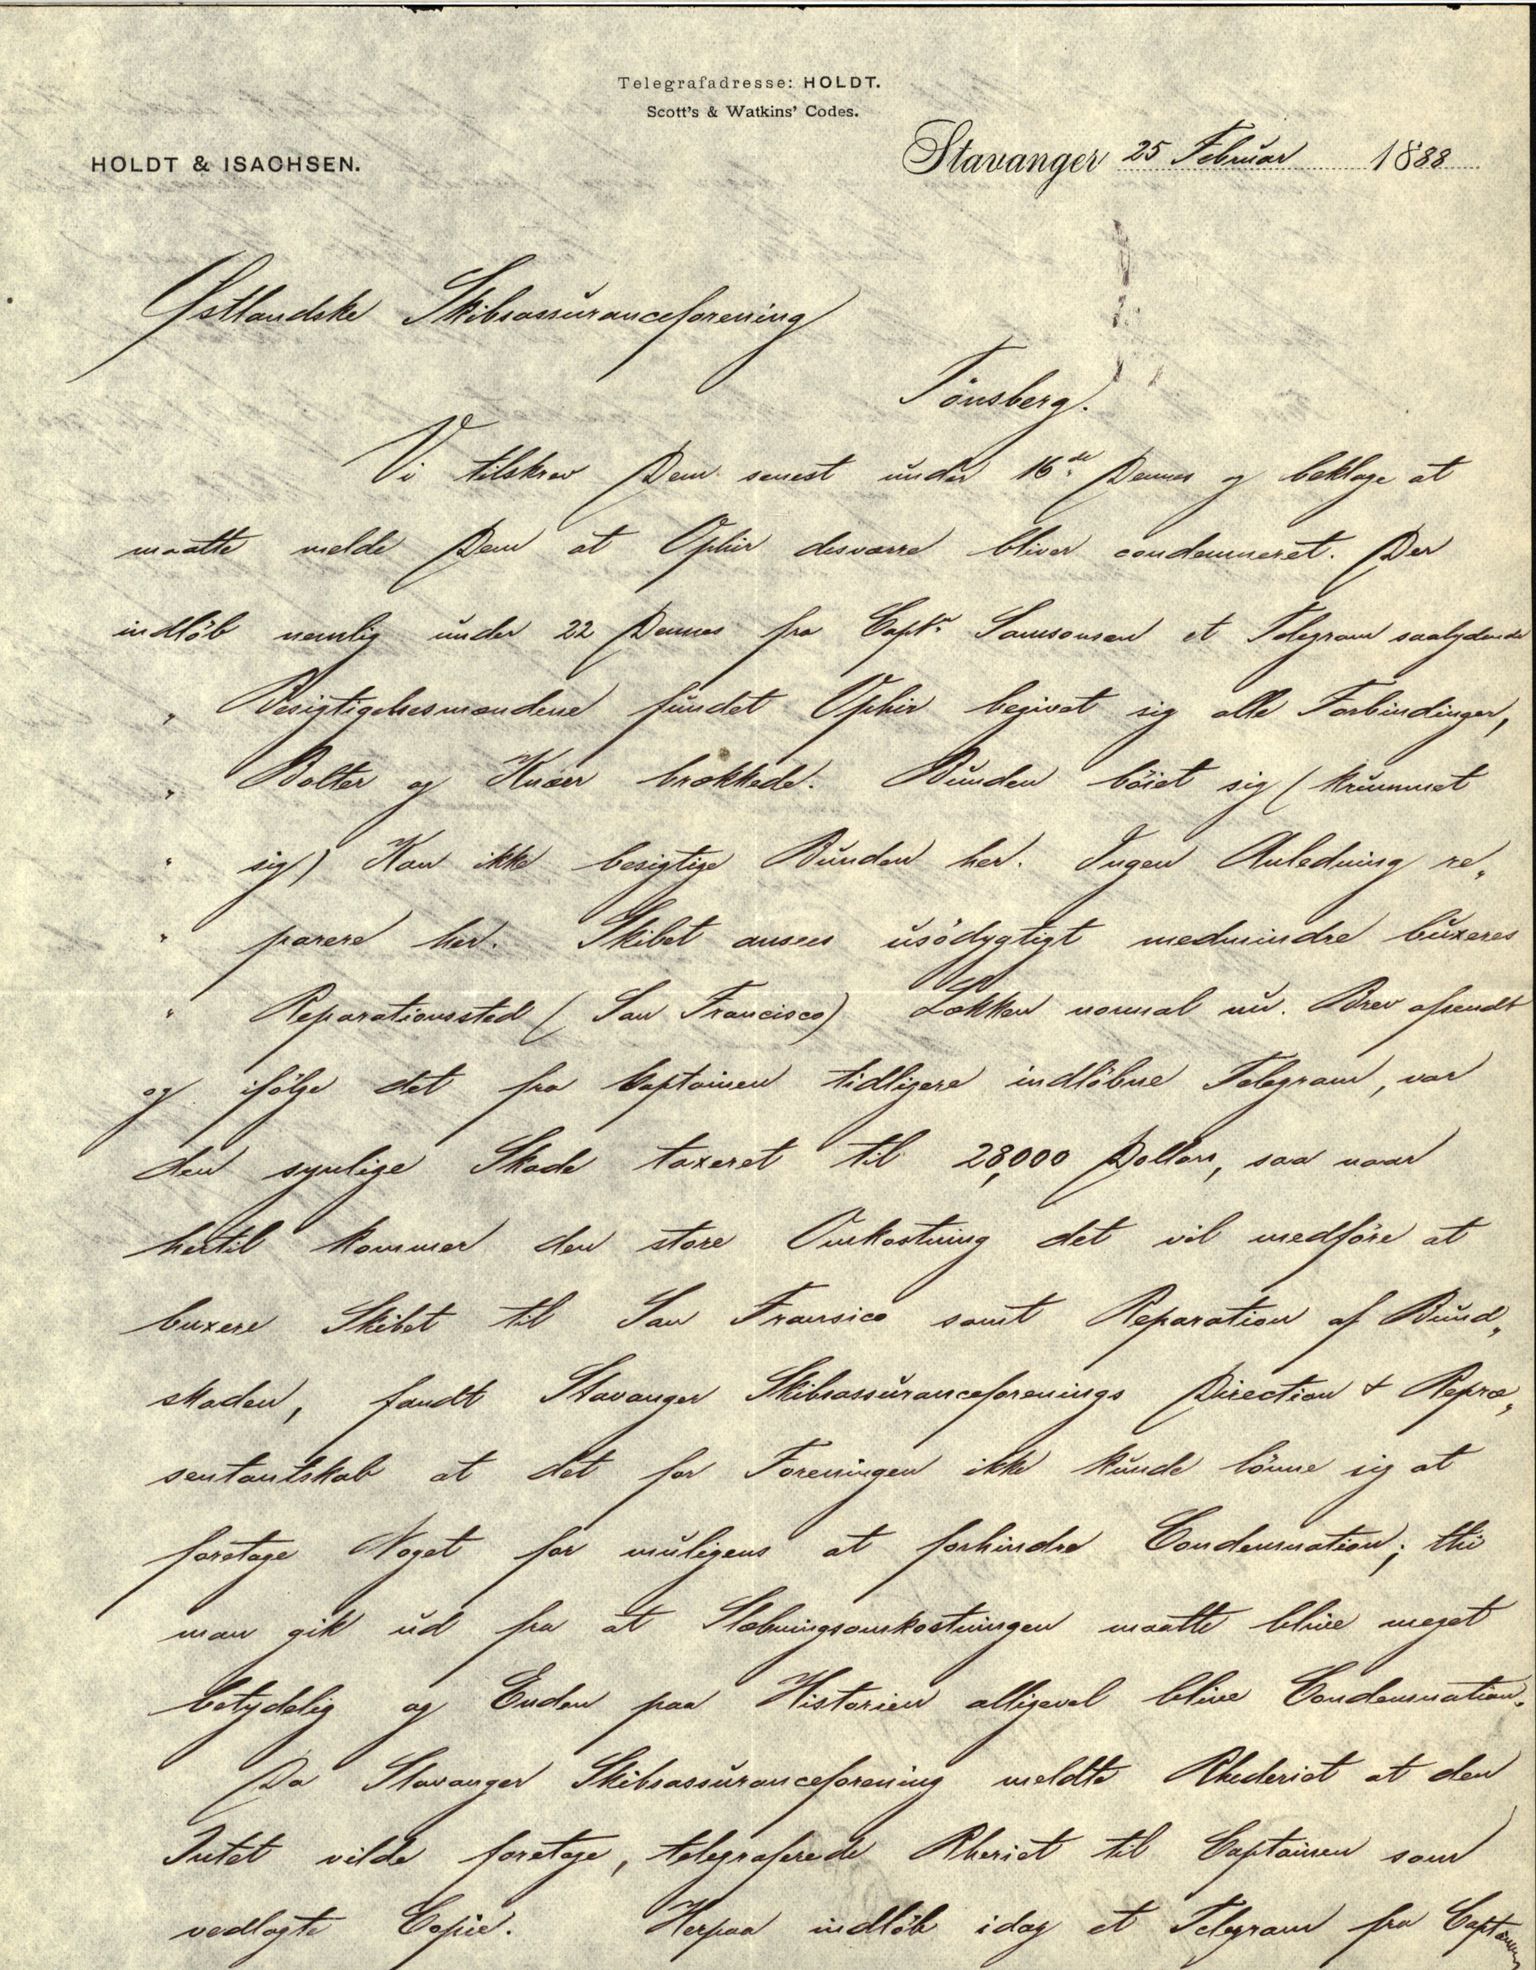 Telegrafadresse: HOLDT.
Scott's & Watkins' Codes.
HOLDT & ISACHSEN.
Stavanger 25 Februar 1888
Østlandske Skibsassuranceforening
Tönsberg.
Vi tilskrev Dem senest under 16de Dennes og beklage at
maatte melde Dem at Ophir desværre bliver condemneret. Der
indlöb nemlig under 22 Dennes fra Captn Samsonsen et Telegram saalydende
" Besigtigelsesmændene fundet Ophir begivet sig alle Forbindinger,
" Bolter og Knæer brækkede. Bunden böiet sig (krummet
" sig) Kan ikke besigtige Bunden her. Ingen Anledning re„
" parere her. Skibet ansees usödygtigt medmindre buxeres
" Reparationssted (San Francisco) Lækken normal nu. Brev afsendt
og ifölge det fra Captainen tidligere indlöbne Telegram, var
den synlige Skade taxeret til 28,000 Dollars, saa naar
hertil kommer den store Omkostning det vil medföre at
buxere Skibet til San Fransico samt Reparation af Bund„
skaden, fandt Stavanger Skibsassuranceforenings Direction & Repræ„
sentantskab at det for Foreningen ikke kunde lönne sig at
foretage Noget for muligens at forhindre Condemnation; thi
man gik ud fra at Slæbningsomkostningen maatte blive meget
betydelig og Enden paa Historien alligevel blive Condemnation.
Da Stavanger Skibsassuranceforening meldte Rhederiet at den
Intet vilde foretage, telegraferede Rheriet til Captainen som
vedlagte Copie. Herpaa indlöb idag et Telegram fra Captainen